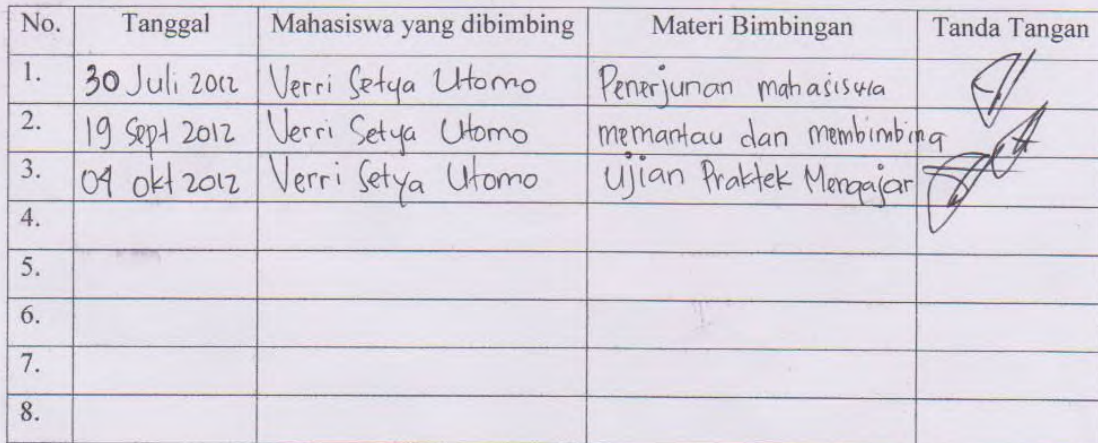 No. Tanggal Mahasiswa yang dibimbing Materi Bimbingan Tanda Tangan
1. 30 Juli 2012 Verri Setya Utomo Penerjunan mahasiswa
2. 19 Sept 2012 Verri Setya Utomo memantau dan membimbing
3. 04 Okt 2012 Verri Setya Utomo Ujian Praktek Mengajar
4.
5.
6.
7.
8.